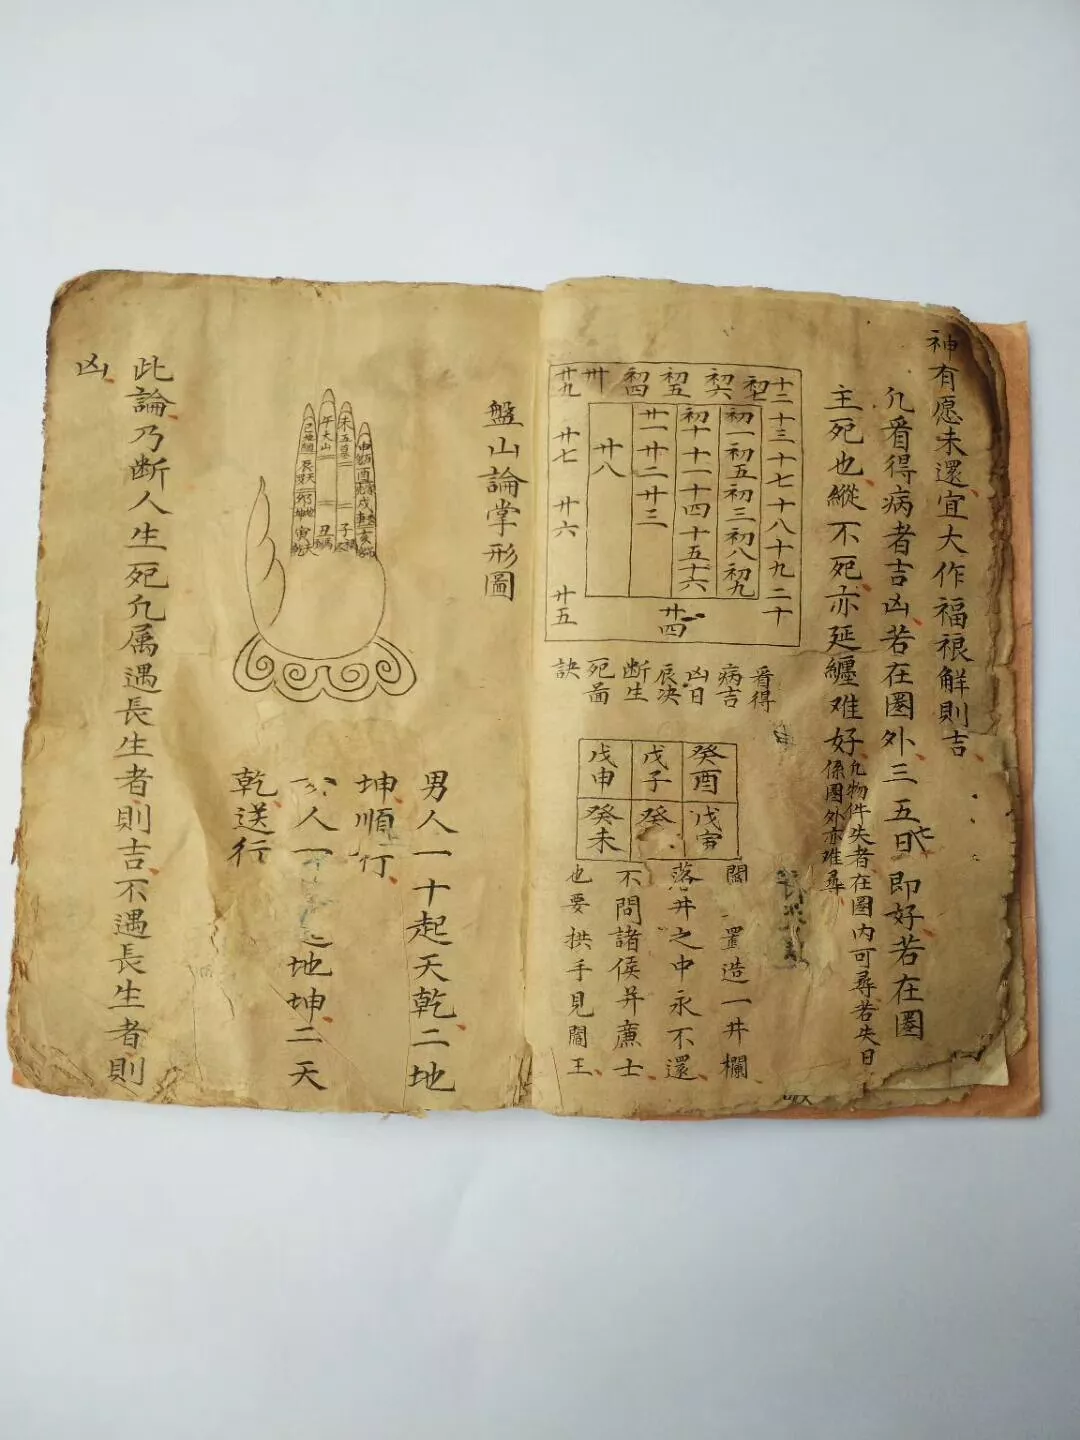 神有愿未還宜大作福禳解則吉
凢看得病者吉凶若在圏外三五七日即好若在圏
主死也縱不死亦延纏难好
凢物件失者在圏内可尋若失日
係圏外亦难尋
十二十三十七十八十九二十
初七
初六
初五
初四
卅
廿九
初一初五初三初八初九
初十十一十四十五十六
廿一廿二廿三
廿八
廿七
廿六
廿五
廿四
看得
病吉
凶日
辰决
断生
死苗
訣
癸酉
戊子
戊申
戊寅
癸
癸未
閻
置造一井欄
落井之中永不還
不問諸侯并廉士
也要拱手見閻王
盤山論掌形圖
男人一十起天乾二地
坤順行
人一
地坤二天
乾送行
此論乃断人生死凢属遇長生者則吉不遇長生者則
凶